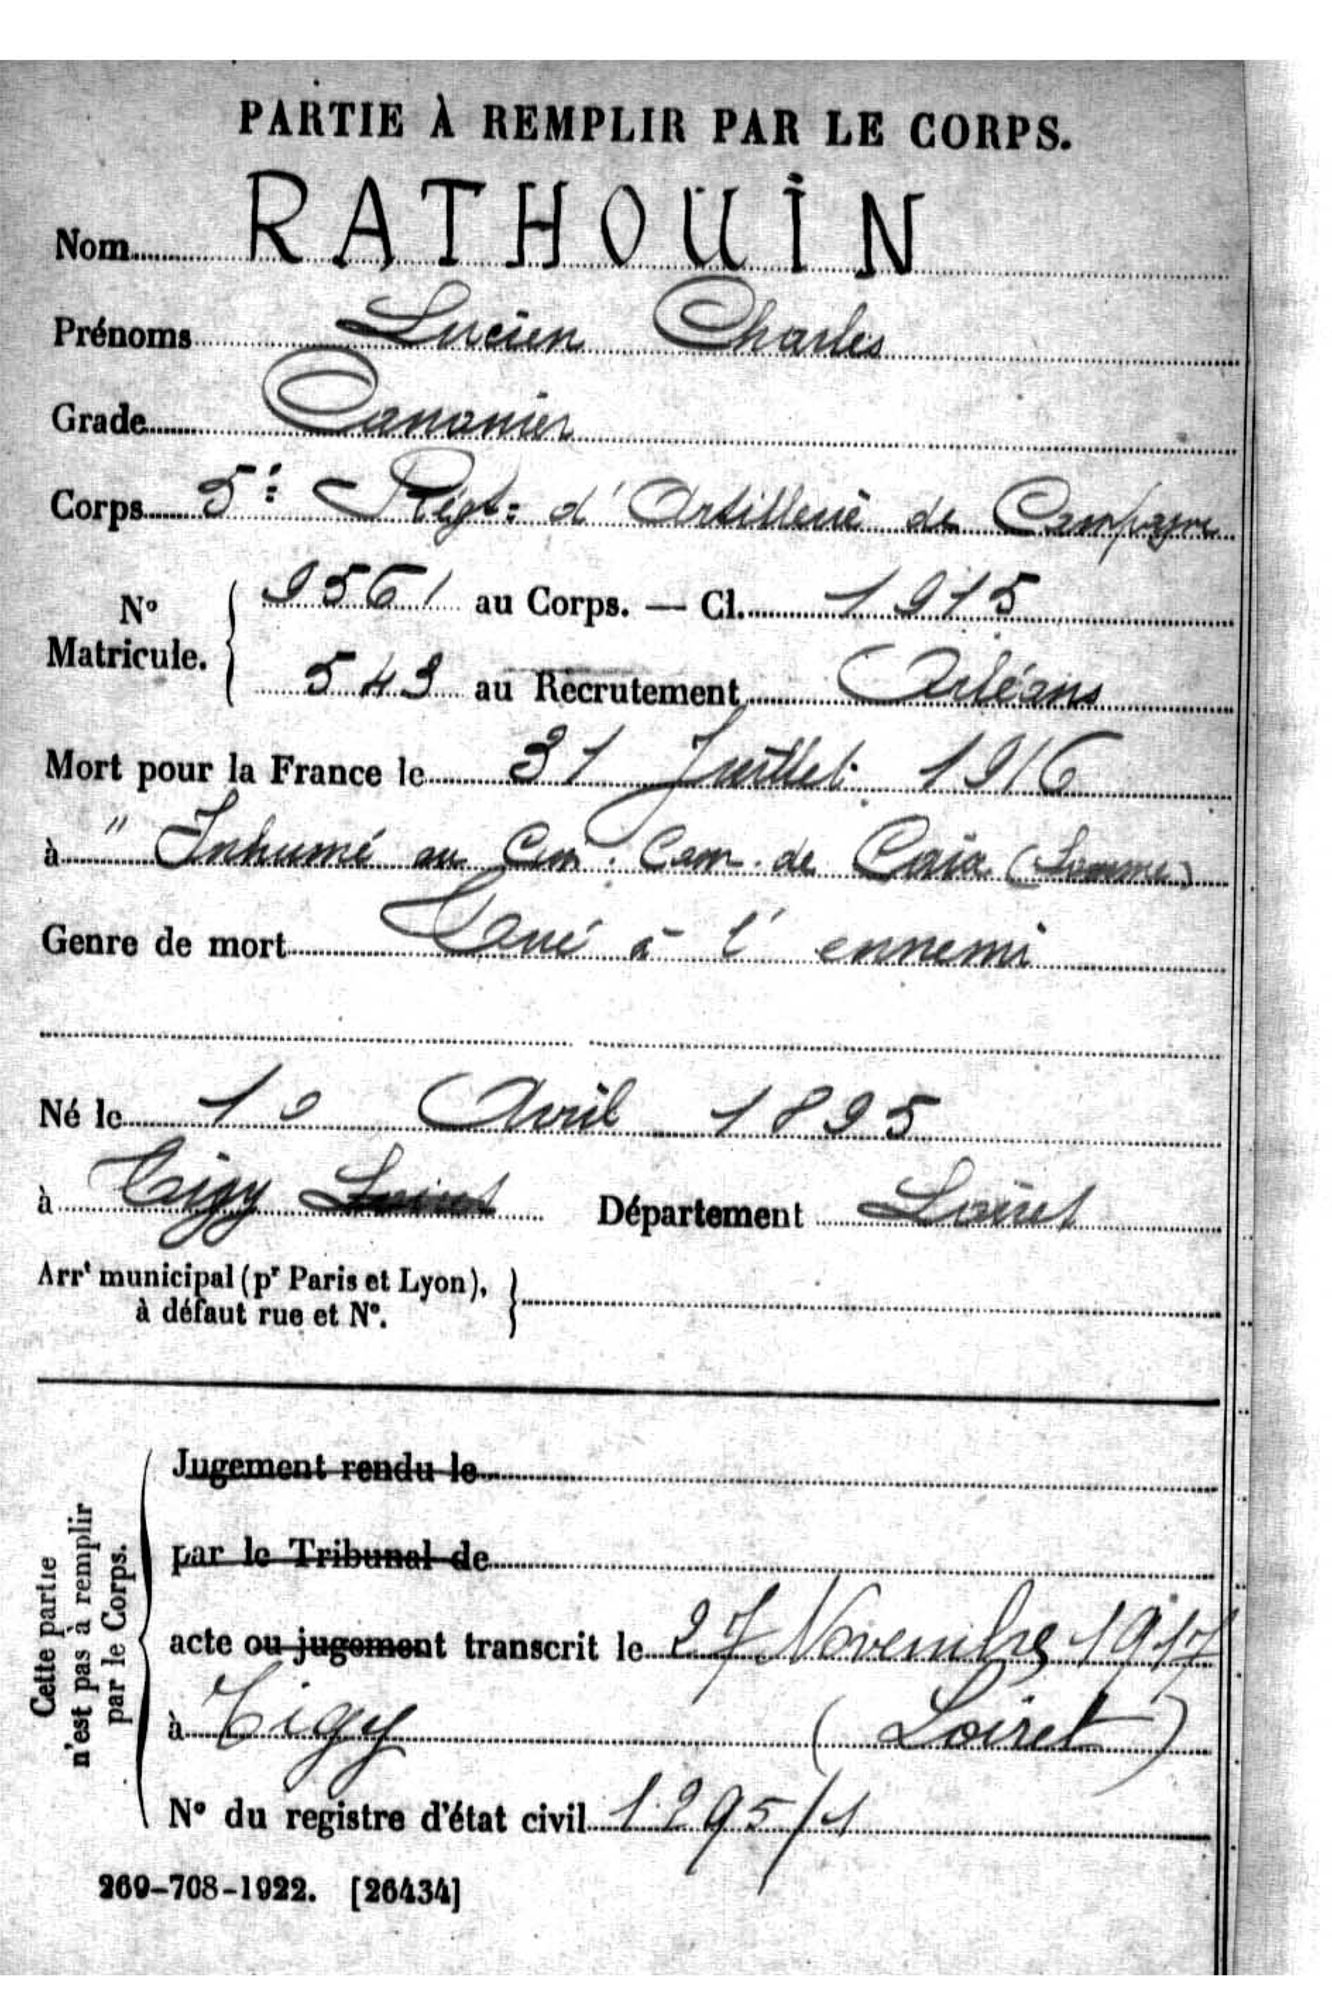 PARTIE À REMPLIR PAR LE CORPS.
Nom RATHOUIN
Prénoms Lucien Charles
Grade Canonier
Corps 5e Régt d'Artillerie de Campagne
N° Matricule. 9561 au Corps. — Cl. 1915
543 au Recrutement Orléans
Mort pour la France le 31 Juillet 1916
à " Inhumé au Cim. Cam. de Caix (Somme)
Genre de mort Tué à l'ennemi
Né le 10 Avril 1895
à Tigy Loiret Département Loiret
Arrt municipal (pr Paris et Lyon),
à défaut rue et N°.
Cette partie
n'est pas à remplir
par le Corps.
Jugement rendu le
par le Tribunal de
acte ou jugement transcrit le 27 Novembre 1917
à Tigy (Loiret)
N° du registre d'état civil 1295/1
269-708-1922. [26434]